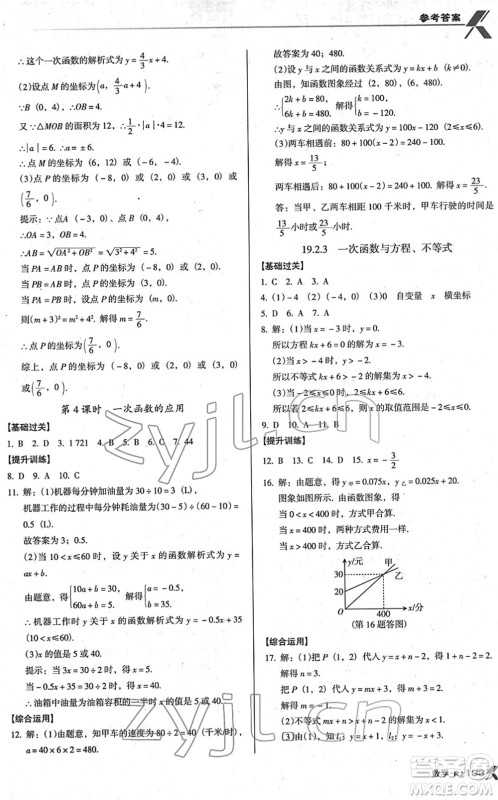 参考答案
∴这个一次函数的解析式为 y=4/3x+4.
(2)设点 M 的坐标为(a, 4/3a+4).
∵B(0,4), ∴OB=4.
又∵△MOB 的面积为 12, ∴1/2·|a|·4=12.
∴|a|=6. ∴a=±6.
∴点 M 的坐标为(6,12)或(-6,-4).
(3)点 P 的坐标为(-8,0)或(2,0)或(3,0)或
(7/6,0)
提示:∵点 A(-3,0),点 B(0,4),
∴OA=3,OB=4.
19.2 ∴AB=√(OA²+OB²)=√(3²+4²)=5.
当 PA=AB 时,点 P 的坐标为(-8,0)或(2,0).
当 PB=AB 时,点 P 的坐标为(3,0).
当 PA=PB 时,设点 P 的坐标为(m,0),
则(m+3)²=m²+4². 解得 m=7/6.
∴点 P 的坐标为(7/6,0).
综上,点 P 的坐标为(-8,0)或(2,0)或(3,0)
或(7/6,0).
第 4 课时 一次函数的应用
【基础过关】
1. B 2. D 3. 1 721 4. B 5. B 6. C 7. 44
【提升训练】
8. D 9. A 10. C
11. 解:(1)机器每分钟加油量为 30÷10=3(L),
机器工作的过程中每分钟耗油量为(30-5)÷(60-10)=
0.5(L).
故答案为 3;0.5.
(2)当 10<x≤60 时,设 y 关于 x 的函数解析式为 y=
ax+b.
由题意,得{10a+b=30, 60a+b=5. 解得{a=-0.5, b=35.
∴机器工作时 y 关于 x 的函数解析式为 y=-0.5x+35
(10<x≤60).
(3)x 的值是 5 或 40.
提示:当 3x=30÷2 时,得 x=5.
当-0.5x+35=30÷2 时,得 x=40.
∴油箱中油量为油箱容积的一半时,x 的值是 5 或 40.
【综合运用】
12. 解:(1)由题意,得甲车的速度为 80÷2=40(千米/时),
a=40×6×2=480.
故答案为 40;480.
(2)设 y 与 x 之间的函数关系式为 y=kx+b.
由图,知函数图象经过(2,80),(6,480),
∴{2k+b=80, 6k+b=480. 解得{k=100, b=-120.
∴y 与 x 之间的函数关系式为 y=100x-120(2≤x≤6).
(3)两车相遇前:80+100(x-2)=240-100.
解得 x=13/5.
两车相遇后:80+100(x-2)=240+100. 解得 x=23/5.
答:当甲、乙两车相距 100 千米时,甲车行驶的时间是
13/5 小时或 23/5 小时.
19.2.3 一次函数与方程、不等式
【基础过关】
1. C 2. A 3. A
4. (1)-4 (2)(-4,0) (3)0 自变量 x 横坐标
5. D 6. A 7. A
8. 解:(1)当 x=-3 时,y=0,
所以方程 kx+b=0 的解为 x=-3.
9. D 10. A 11. A
【提升训练】
12. B 13. C 14. D
16. 解:由题意,得 y甲=0.075x,y乙=0.025x+20.
图象如图所示. 根据函数图象,得
当 0<x<400 时,方式甲合算.
当 x=400 时,两种方式费用一样.
当 x>400 时,方式乙合算.
y/元
甲
乙
30
20
O
400
x/分
(第 16 题答图)
【综合运用】
17. 解:(1)把 P(1,2)代入 y=x+n-2,得 1+n-2=2.
解得 n=3.
把 P(1,2)代入 y=mx+3,得 m+3=2.
解得 m=-1.
zyjl.cn
zyjl.cn
数学·RJ 133